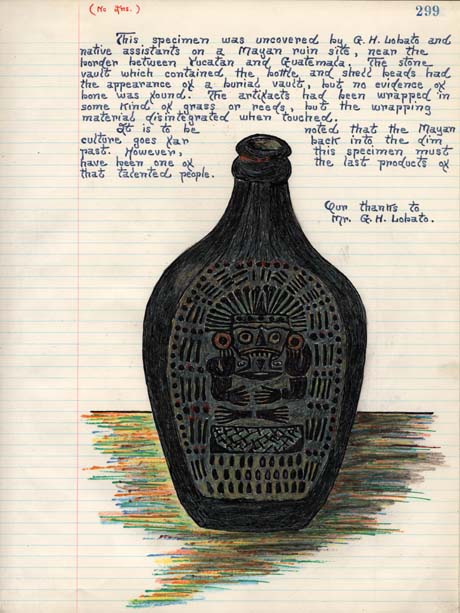 (No Ins.)
299
This specimen was uncovered by G. H. Lobato and
native assistants on a Mayan ruin site, near the
border between Yucatan and Guatemala. The stone
vault which contained the bottle and shell beads had
the appearance of a burial vault, but no evidence of
bone was found. The artifacts had been wrapped in
some kind of grass or reeds, but the wrapping
material disintegrated when touched.
It is to be noted that the Mayan
culture goes far back into the dim
past. However, this specimen must
have been one of the last products of
that talented people.
Our thanks to
Mr. G. H. Lobato.